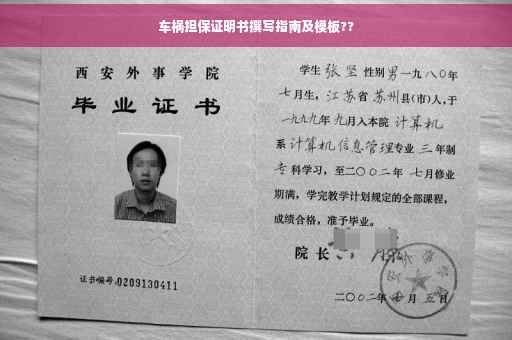 车祸担保证明书撰写指南及模板??
西安外事学院
毕业证书
证书编号:0209130411
学生 张坚 性别 男 一九八〇年
七月生,江苏省苏州县(市)人,于
一九九九年九月入本院 计算机
系 计算机信息管理 专业 三 年制
专科学习,至二〇〇二年 七月修业
期满,学完教学计划规定的全部课程,
成绩合格,准予毕业。
院长
二〇〇二年 月五日